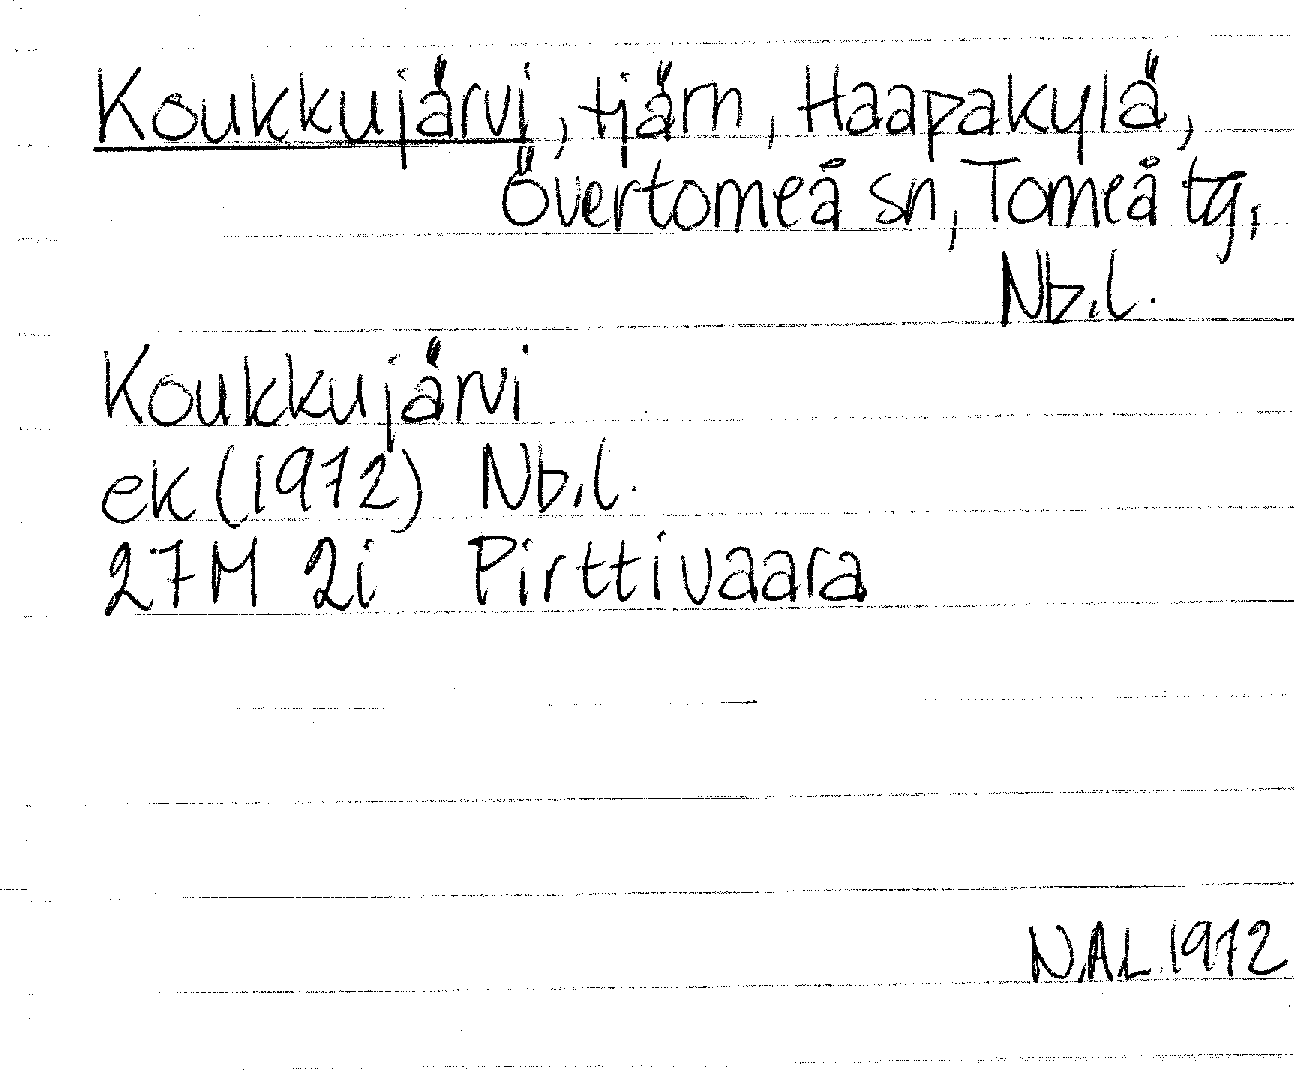 Koukkujärvi, tjärn, Haapakylä,
Övertorneå sn, Torneå tg,
Nb.l.
Koukkujärvi
ek (1972) Nb.l.
27M 2i Pirttivaara
N.A.L. 1972